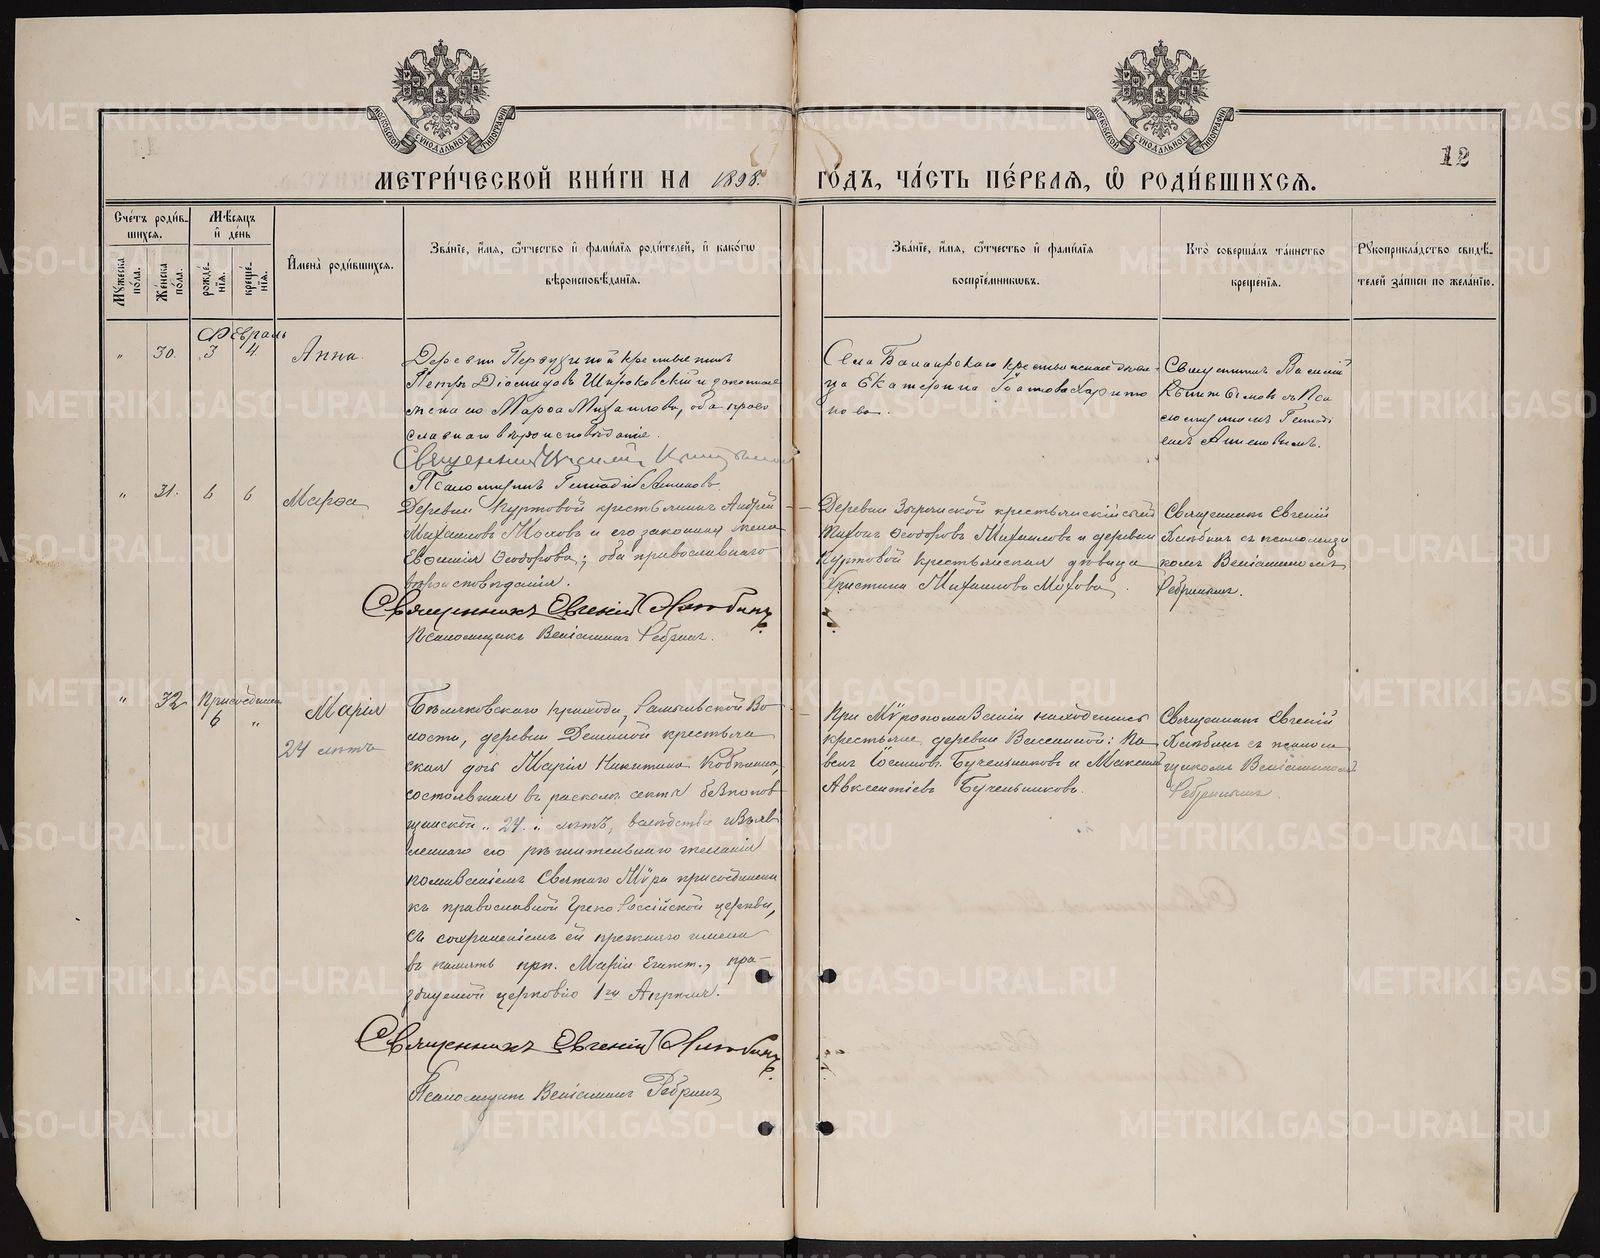 МЕТРИ́ЧЕСКОЙ КНИ́ГИ НА 1898. ГО́ДЪ, ЧА́СТЬ ПЕ́РВАѦ, Ѡ҆ РОДИ́ВШИХСѦ.
12
Сче́тъ роди́в-
шихсѧ.
Мꙋ́жеска по́ла.
Же́нска по́ла.
Мѣ́сѧцъ
и҆ де́нь
рожде́-
нїѧ.
креще́-
нїѧ.
И҆мена̀ роди́вшихсѧ.
Зва́нїе, и҆́мѧ, ѻ҆́тчество и҆ фами́лїѧ роди́телей, и҆ како́гѡ
вѣроисповѣ́данїѧ.
Зва́нїе, и҆́мѧ, ѻ҆́тчество и҆ фами́лїѧ
воспрїе́мникѡвъ.
Кто̀ соверша́лъ та́инство
креще́нїѧ.
Рꙋкоприкла́дство свидѣ́-
телей за́писи по жела́нїю.
Февраль
" 30. 3 4. Анна.
Петръ Діомидовъ Широковскій и законная
жена его Марѳа Михаилова, оба право
славнаго вѣроисповѣданія.
Села крестьянская дѣви-
ца Екатерина
Священникъ Василій
Псаломщикъ Геннадій
" 31. 6 6 Марѳа
Деревни Куртовой крестьянинъ Андрей
Михаиловъ Моховъ и его законная жена
Евѳимія Ѳеодорова; оба православнаго
вѣроисповѣданія.
Священникъ Евгеній Хлѣбинъ
Псаломщикъ Веніаминъ Ребринъ.
Деревни крестьянскій сынъ
Тихонъ Ѳеодоровъ Михаиловъ и деревни
Куртовой крестьянская дѣвица
Христина Михаилова Мохова.
Священникъ Евгеній
Хлѣбинъ съ псаломщи
комъ Веніаминомъ
Ребринымъ.
" 32 Присоединена
6 " Марія
24 лѣтъ
Бѣляковскаго прихода, Во
лости, деревни Деминой крестьян
ская дочь Марія Никитина
состоявшая въ расколѣ секты безпопов
щинской, 24. лѣтъ, вслѣдствіе изъяв
леннаго ею рѣшительнаго желанія
помазаніемъ Святаго Мѵра присоединена
къ православной Греко-Россійской церкви,
съ сохраненіемъ ей прежняго имени
въ память прп. Маріи Египт., пра-
зднуемой церковію 1го Апрѣля.
Священникъ Евгеній Хлѣбинъ
Псаломщикъ Веніаминъ Ребринъ
При Мѵропомазаніи находились
крестьяне деревни : Па
велъ Осиповъ Бучельниковъ и Максимъ
Авксентіевъ Бучельниковъ.
Священникъ Евгеній
Хлѣбинъ съ псалом
щикомъ Веніаминомъ
Ребринымъ.
METRIKI.GASO-URAL.RU